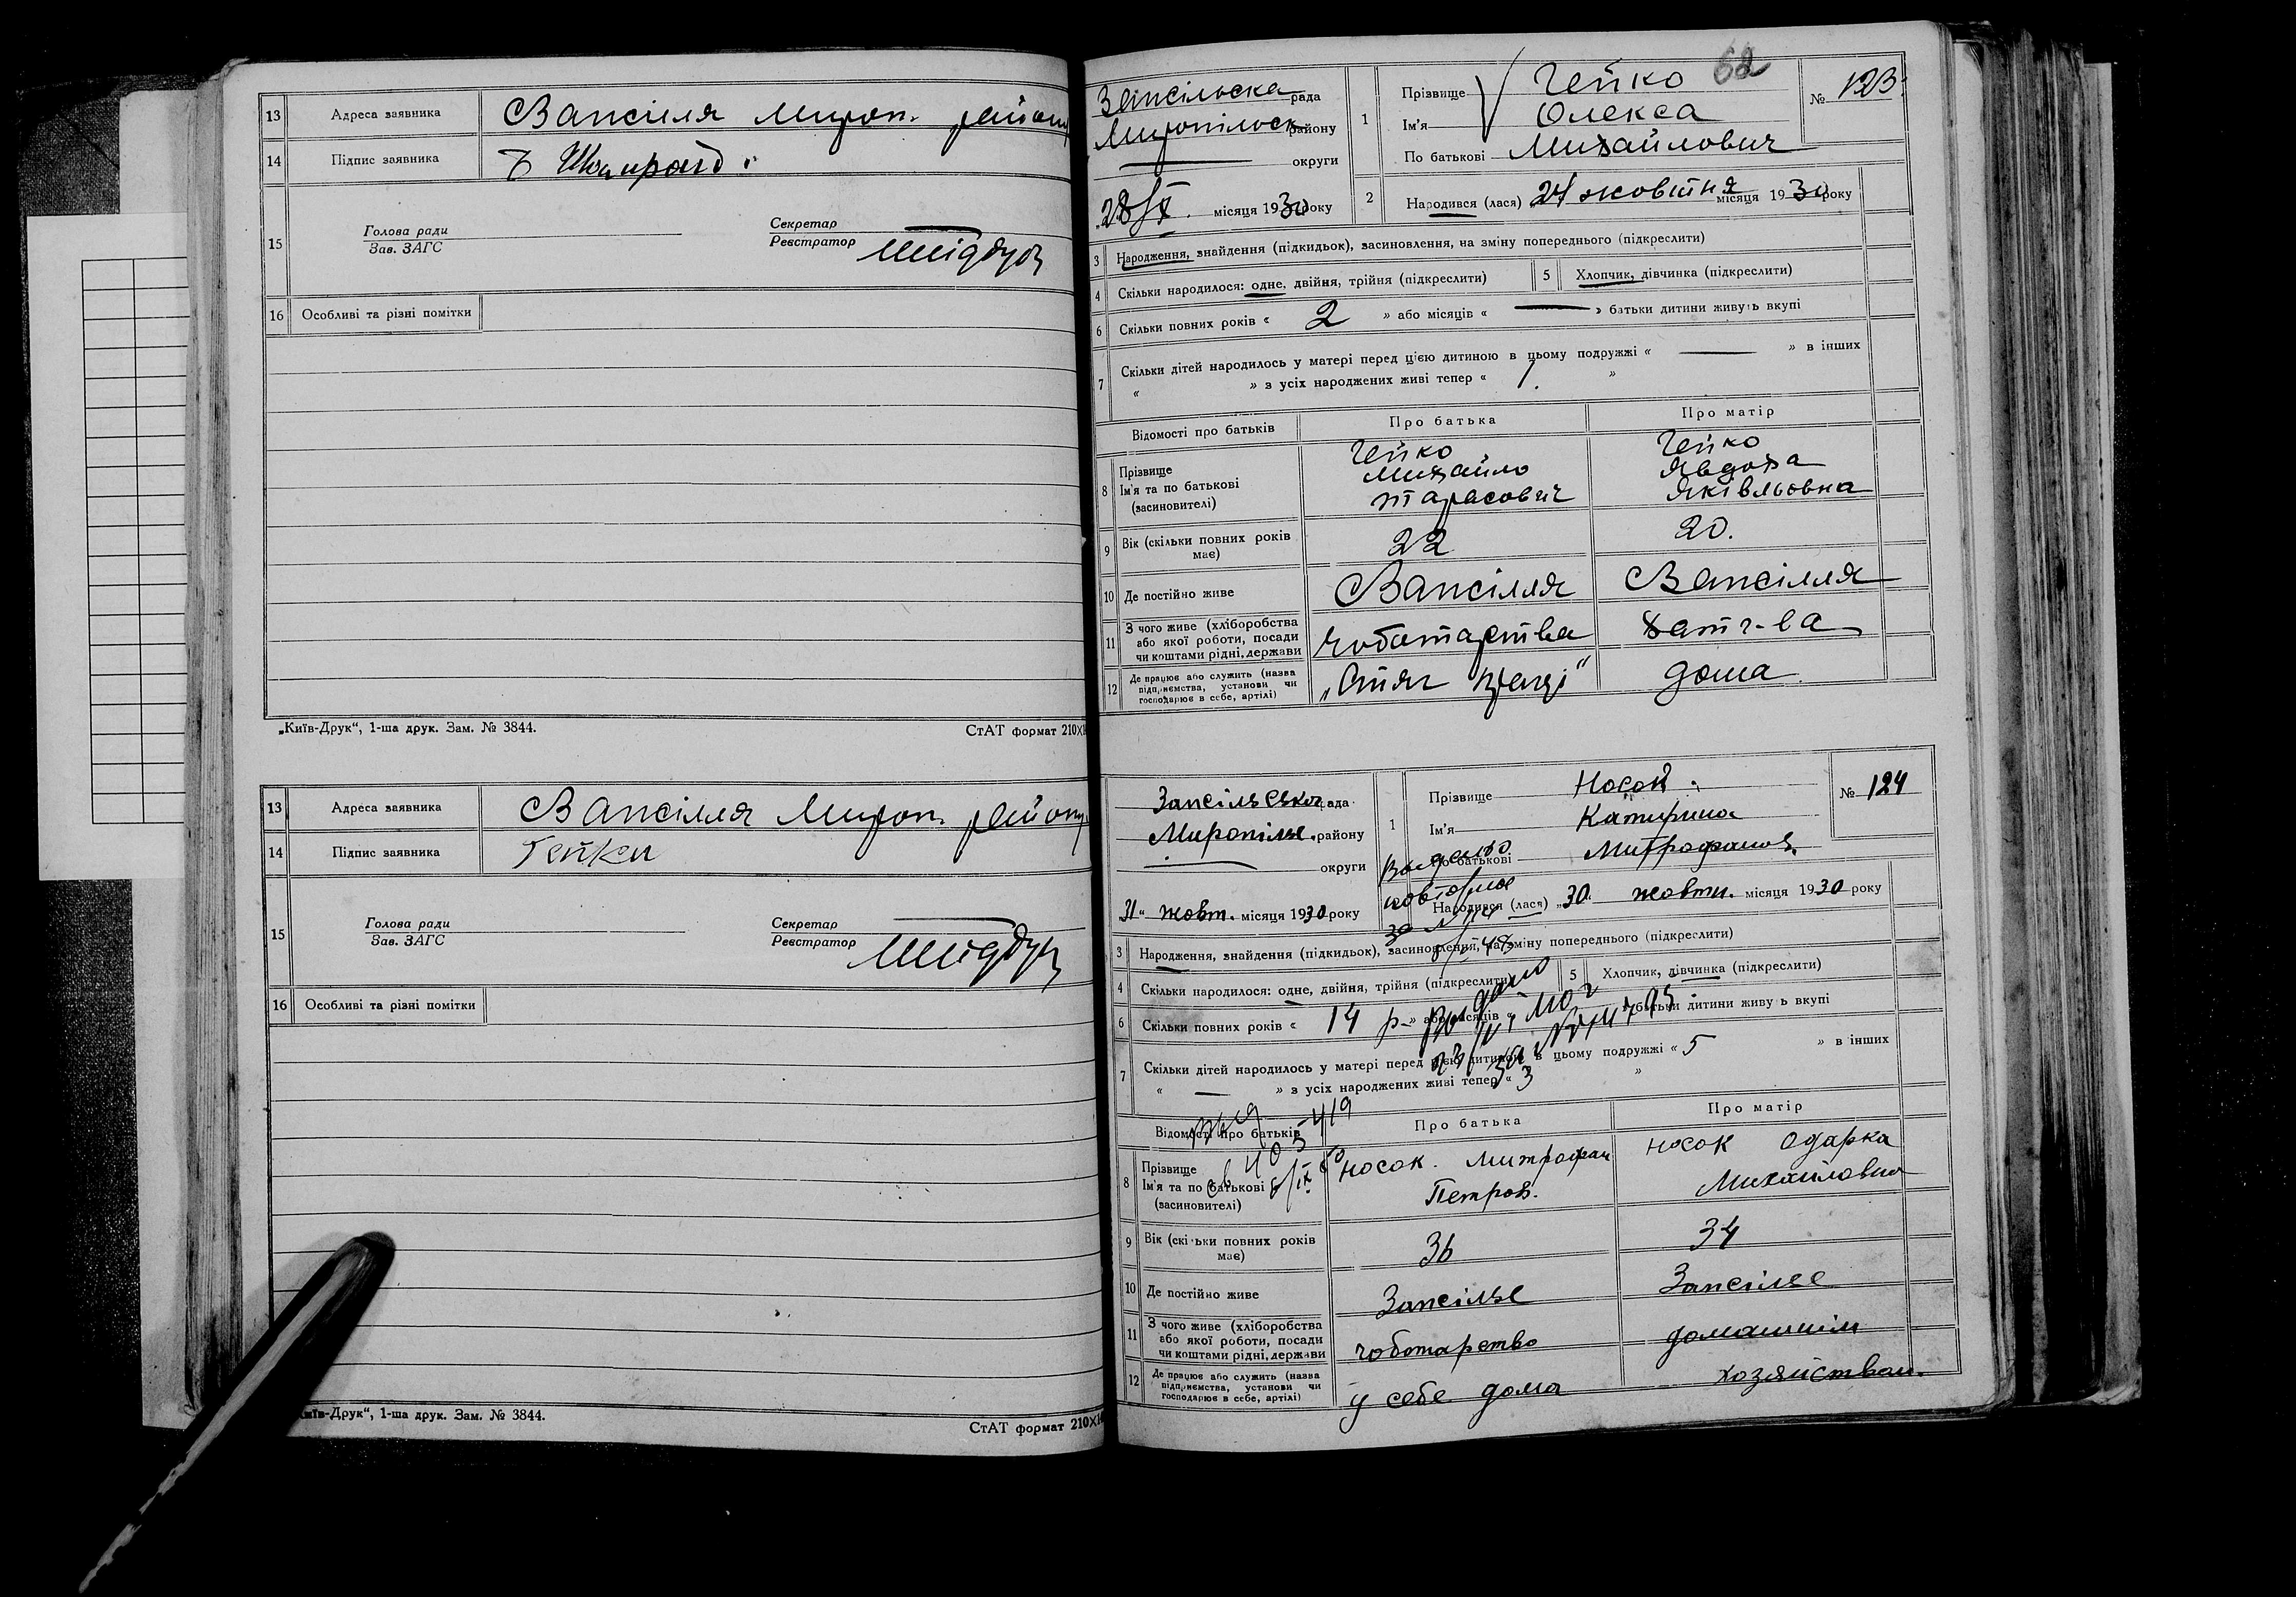 13 Адреса заявника Запсілля Мироп. району
14 Підпис заявника
15 Голова ради
Зав. ЗАГС
Секретар
Реєстратор
16 Особливі та різні помітки
„Київ-Друк“, 1-ша друк. Зам. № 3844.
СтАТ формат 210×
13 Адреса заявника Запсілля Мироп. району
14 Підпис заявника Гейко
15 Голова ради
Зав. ЗАГС
Секретар
Реєстратор
16 Особливі та різні помітки
Київ-Друк“, 1-ша друк. Зам. № 3844.
СтАТ формат 210×
62
Запсільська рада
Миропільськ району
округи
28/X місяця 1930 року
1 Прізвище Гейко
Ім'я Олекса
По батькові Михайлович
№ 123.
2 Народився (лася) 24 жовтня місяця 1930 року
3 Народження, знайдення (підкидьок), засиновлення, на зміну попереднього (підкреслити)
4 Скільки народилося: одне, двійня, трійня (підкреслити)
5 Хлопчик, дівчинка (підкреслити)
6 Скільки повних років « 2 » або місяців « — » батьки дитини живуть вкупі
7 Скільки дітей народилось у матері перед цією дитиною в цьому подружжі « — » в інших
« » з усіх народжених живі тепер « 1. »
Відомості про батьків Про батька Про матір
8 Прізвище Гейко Гейко
Ім'я та по батькові Михайло Явдоха
(засиновителі) Тарасович Яківльовна
9 Вік (скільки повних років має) 22 20.
10 Де постійно живе Запсілля Запсілля
11 З чого живе (хліборобства або якої роботи, посади чи коштами рідні, держави чоботарства хатч-ва
12 Де працює або служить (назва підприємства, установи чи господарює в себе, артілі) дома
Запсільська рада
Миропільс. району
округи
31 „ жовт. місяця 1930 року
1 Прізвище Носок
Ім'я Катирина
По батькові Митрофанов.
№ 124
Видано
повторное
за №
2 Народився (лася) „30. жовтн. місяця 1930 року
3 Народження, знайдення (підкидьок), засиновлення, на зміну попереднього (підкреслити)
4 Скільки народилося: одне, двійня, трійня (підкреслити)
5 Хлопчик, дівчинка (підкреслити)
6 Скільки повних років « 14 р » або місяців « батьки дитини живуть вкупі
Видано
7 Скільки дітей народилось у матері перед цією дитиною в цьому подружжі « 5 » в інших
« — » з усіх народжених живі тепер « 3 »
Відомості про батьків Про батька Про матір
8 Прізвище Носок. Митрофан Носок Одарка
Ім'я та по батькові Петров. Михайловна
(засиновителі)
9 Вік (скільки повних років має) 36 34
10 Де постійно живе Запсілье Запсілье
11 З чого живе (хліборобства або якої роботи, посади чи коштами рідні, держави чоботарство домашнім
12 Де працює або служить (назва підприємства, установи чи господарює в себе, артілі) у себе дома хозяйствам.